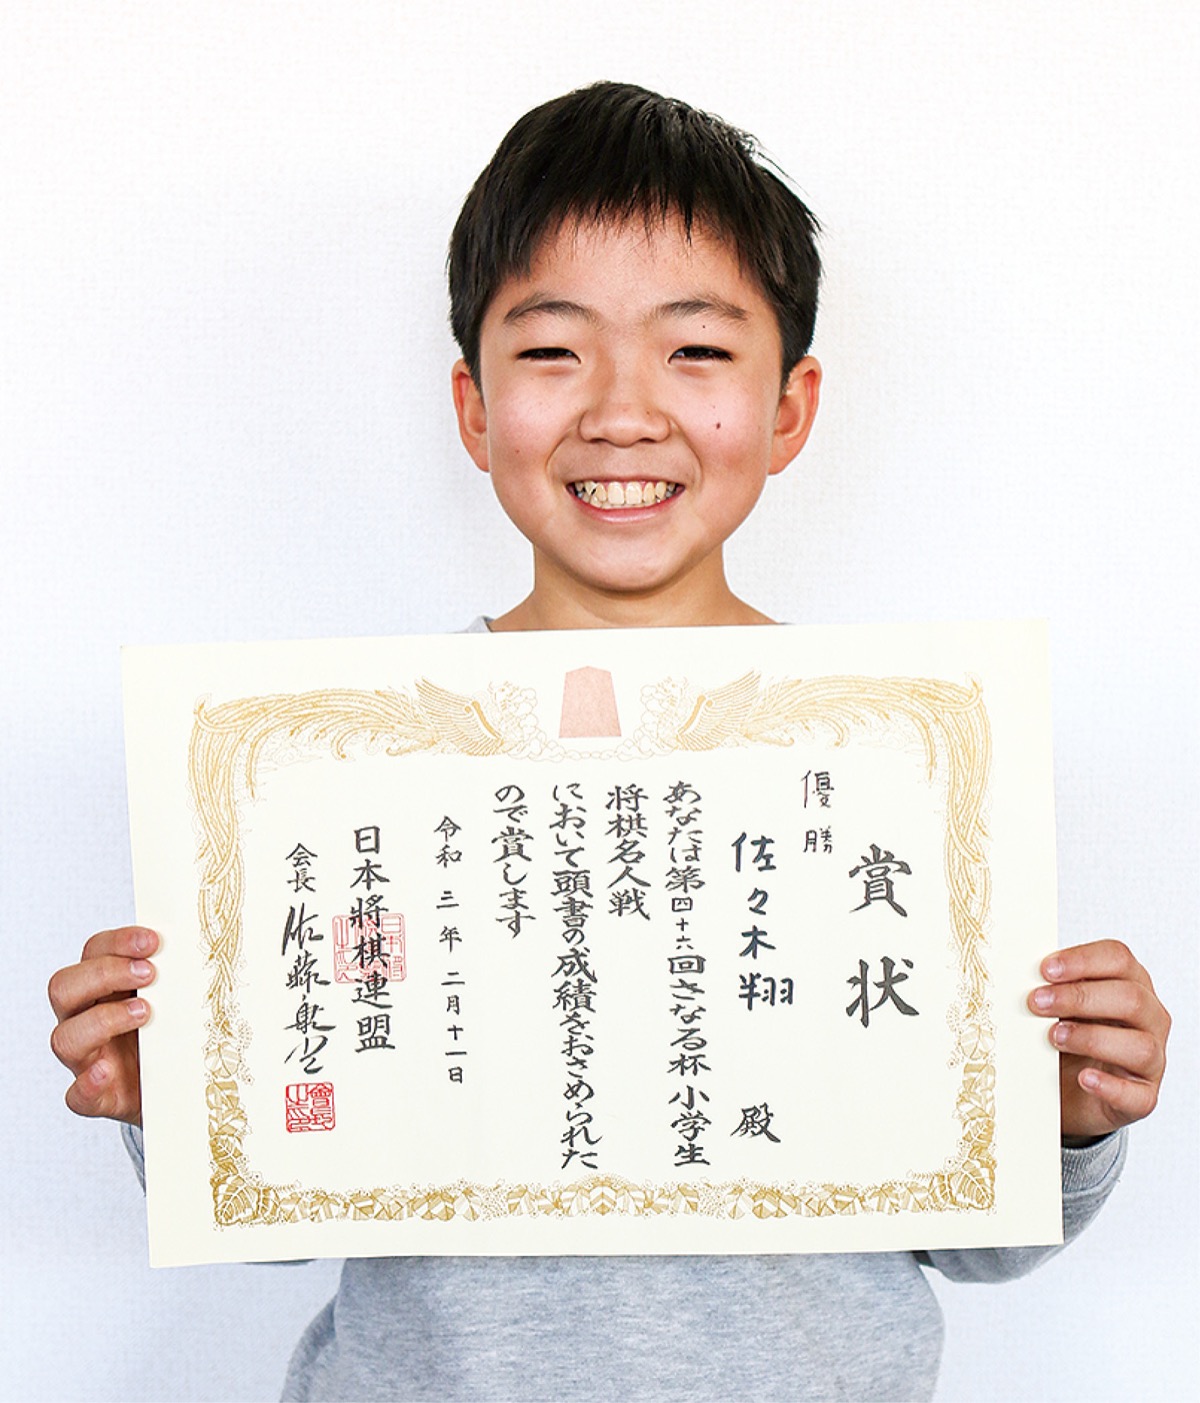 賞状
優勝
佐々木翔 殿
あなたは第四十六回さなる杯小学生
将棋名人戦
において頭書の成績をおさめられた
ので賞します
令和三年二月十一日
日本将棋連盟
会長 佐藤康光